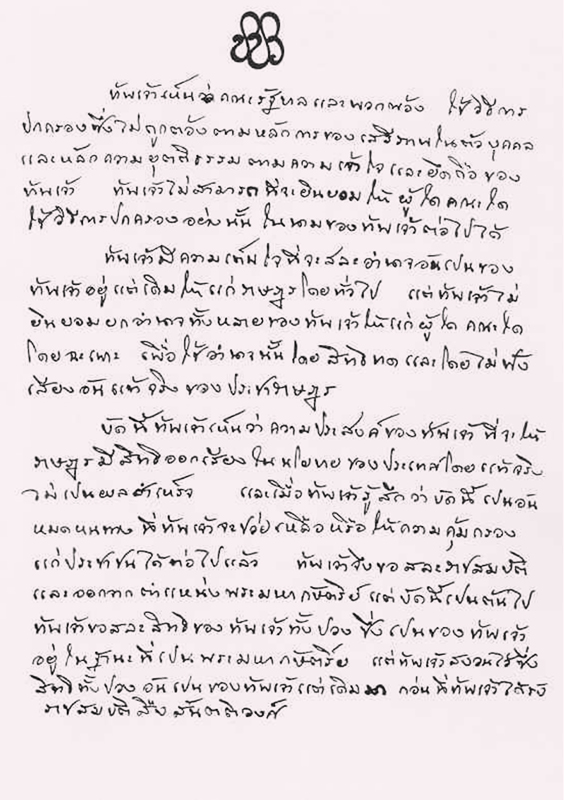 ข้าพเจ้าเห็นว่าคณะรัฐบาลและพวกพ้อง ใช้วิธีการ
ปกครองซึ่งไม่ถูกต้องตามหลักการของเสรีภาพในตัวบุคคล
และหลักความยุตติธรรมตามความเข้าใจและยึดถือของ
ข้าพเจ้า ข้าพเจ้าไม่สามารถที่จะยินยอมให้ ผู้ใด คณะใด
ใช้วิธีการปกครองอย่างนั้น ในนามของข้าพเจ้าต่อไปได้
ข้าพเจ้ามีความเต็มใจที่จะสละอำนาจอันเป็นของ
ข้าพเจ้าอยู่แต่เดิมให้แก่ราษฎรโดยทั่วไป แต่ข้าพเจ้าไม่
ยินยอมยกอำนาจทั้งหลายของข้าพเจ้าให้แก่ผู้ใด คณะใด
โดยฉะเพาะ เพื่อใช้อำนาจนั้นโดยสิทธิขาดและโดยไม่ฟัง
เสียงอันแท้จริงของประชาราษฎร
บัดนี้ข้าพเจ้าเห็นว่าความประสงค์ของข้าพเจ้าที่จะให้
ราษฎรมีสิทธิออกเสียงในนโยบายของประเทศโดยแท้จริง
ไม่เป็นผลสำเร็จ และเมื่อข้าพเจ้ารู้สึกว่าบัดนี้เป็นอัน
หมดหนทางที่ข้าพเจ้าจะช่วยเหลือหรือให้ความคุ้มครอง
แก่ประชาชนได้ต่อไปแล้ว ข้าพเจ้าจึงขอสละราชสมบัติ
และออกจากตำแหน่งพระมหากษัตริย์แต่บัดนี้เป็นต้นไป
ข้าพเจ้าขอสละสิทธิของข้าพเจ้าทั้งปวง ซึ่งเป็นของข้าพเจ้า
อยู่ในฐานะที่เป็นพระมหากษัตริย์ แต่ข้าพเจ้าสงวนไว้ซึ่ง
สิทธิทั้งปวงอันเป็นของข้าพเจ้าแต่เดิมมา ก่อนที่ข้าพเจ้าได้รับ
ราชสมบัติสืบสันตติวงศ์